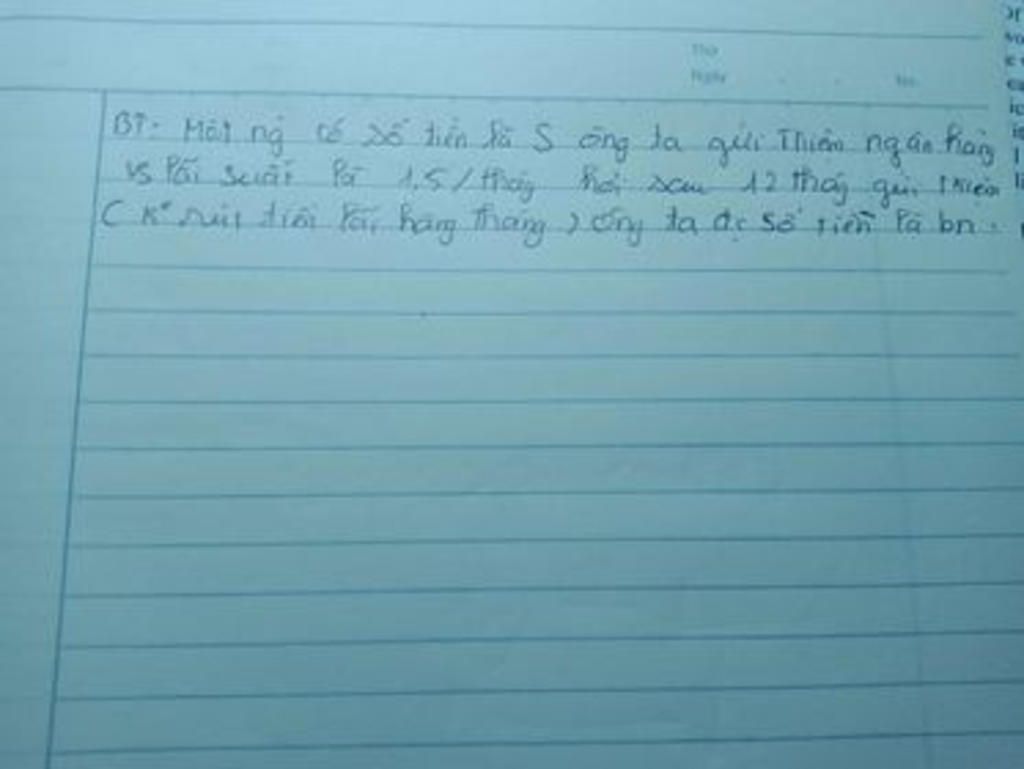 Thứ
Ngày No.
BT: Một ng có số tiền là S ông ta gửi Tiền ngân hàng
vs lãi suất là 1,5/tháng hỏi sau 12 tháng gửi
( K° rút tiền lãi hàng tháng ) ông ta đc số tiền là bn.